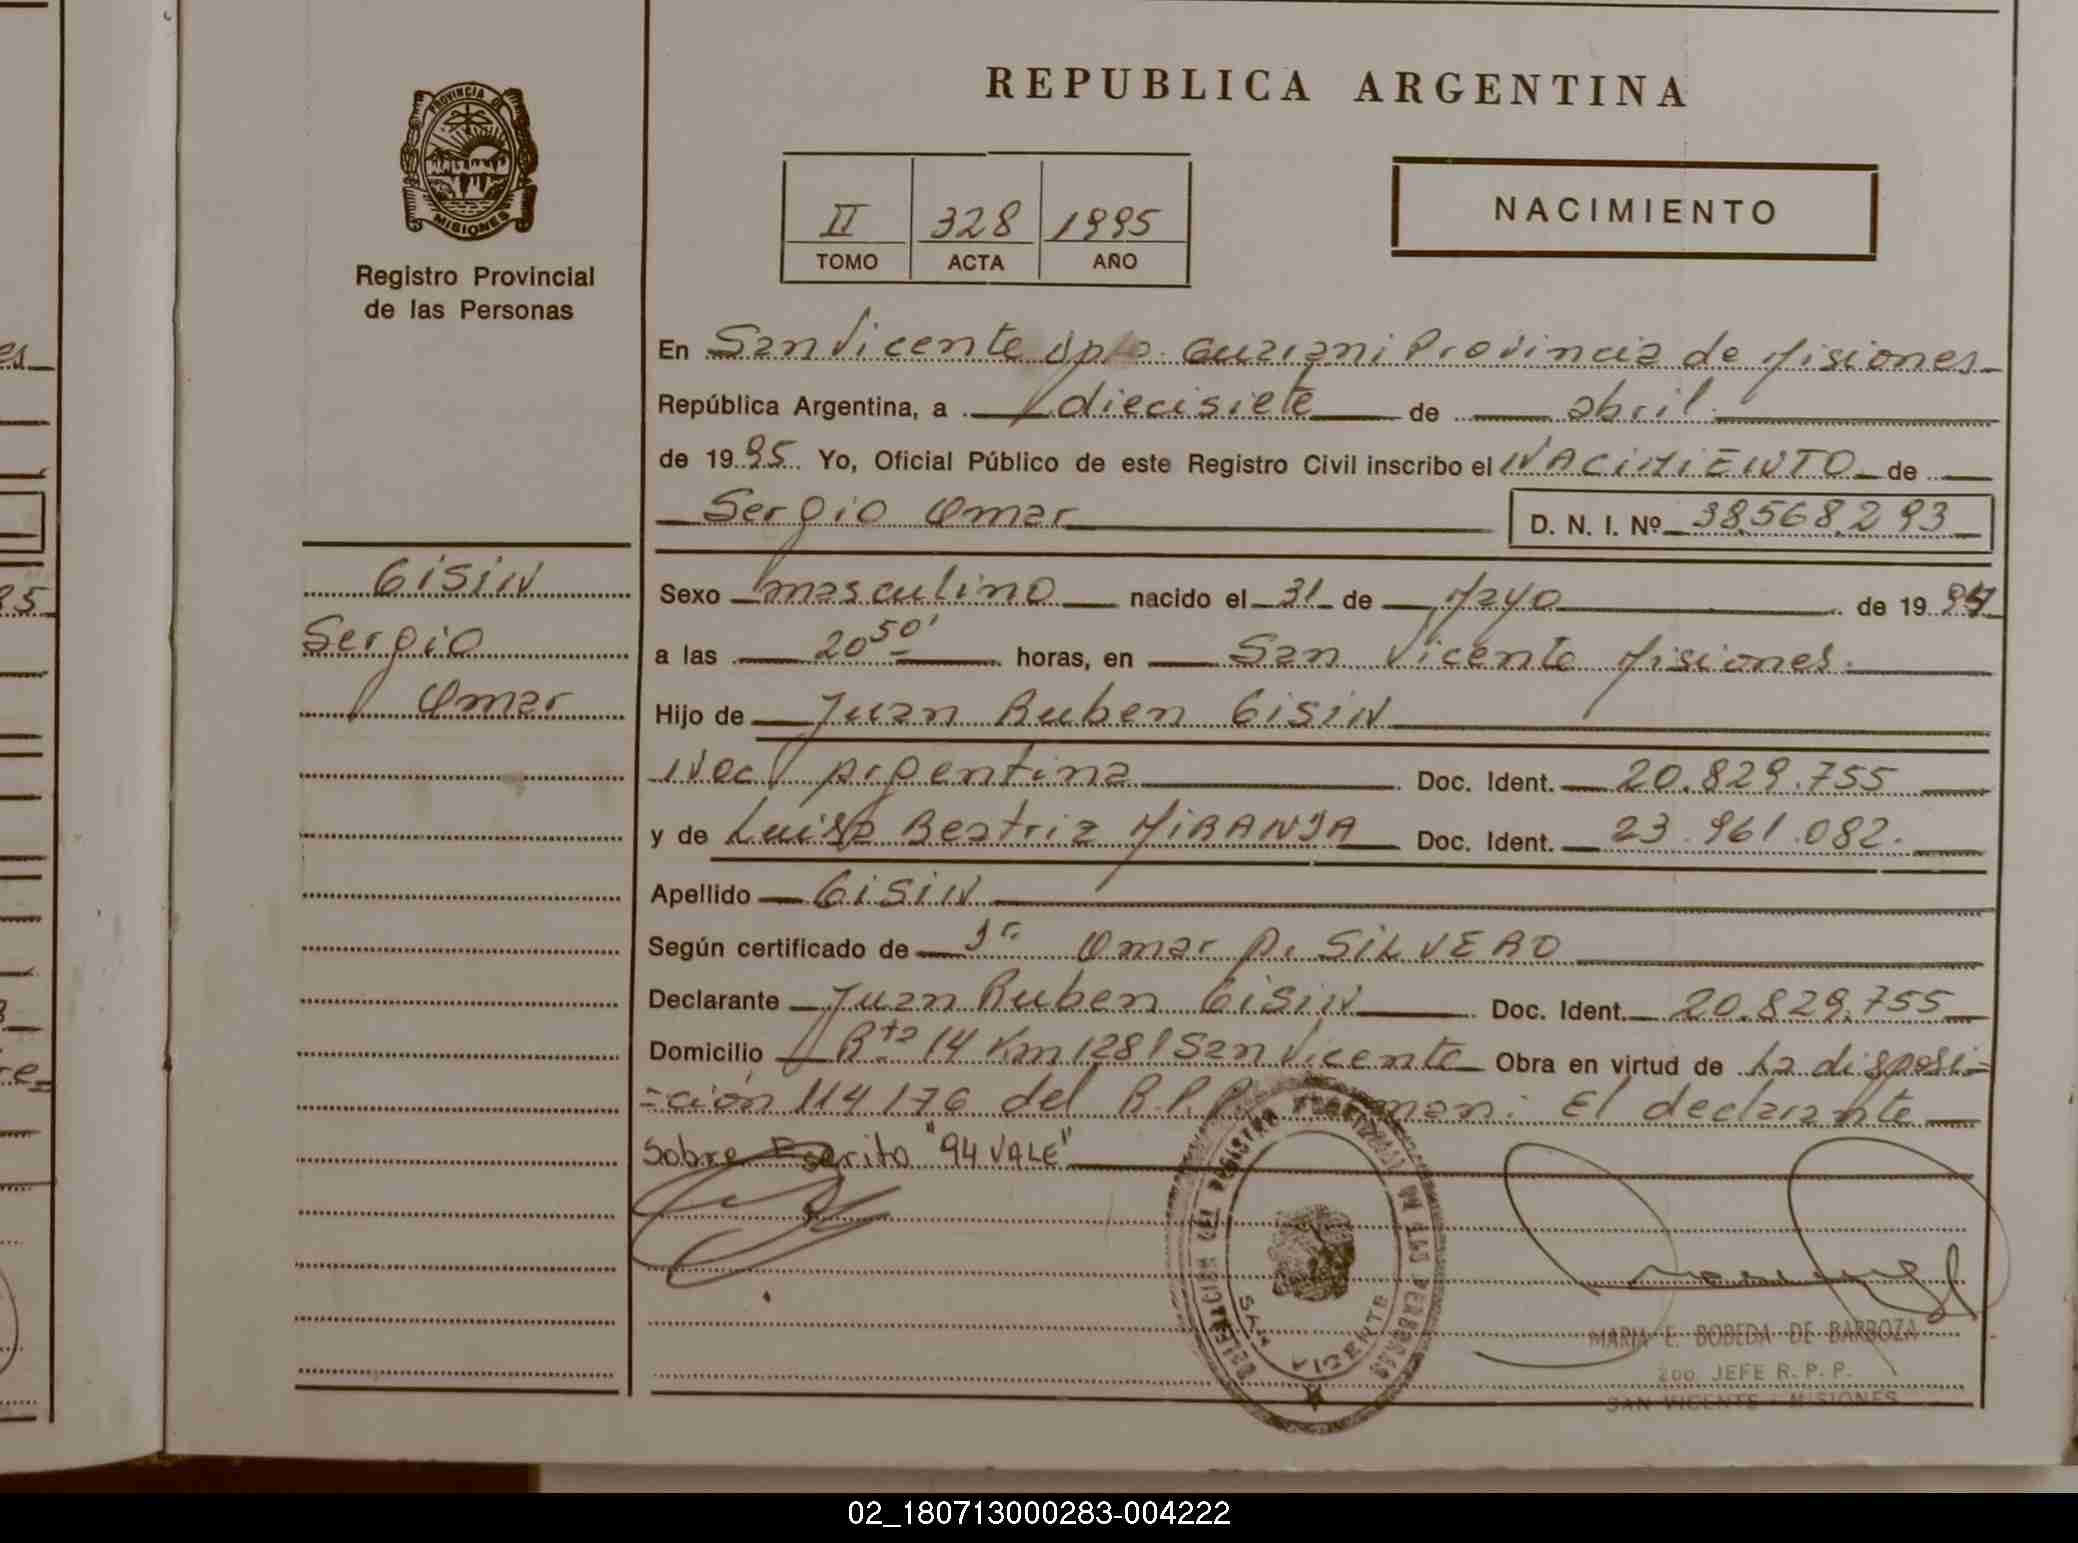 REPUBLICA ARGENTINA
PROVINCIA DE
MISIONES
Registro Provincial
de las Personas
II 328 1995
TOMO ACTA AÑO
NACIMIENTO
En San Vicente Dpto. Guarani Provincia de Misiones
República Argentina, a diecisiete de abril
de 1995 Yo, Oficial Público de este Registro Civil inscribo el NACIMIENTO de
Sergio Omar D. N. I. Nº 38.568.293
GISIN
Sergio
Omar
Sexo masculino nacido el 31 de Mayo de 1994
a las 20 50' horas, en San Vicente Misiones.
Hijo de Juan Ruben GISIN
Nac Argentina Doc. Ident. 20.829.755
y de Luisa Beatriz MIRANDA Doc. Ident. 23.961.082.
Apellido GISIN
Según certificado de Dr. Omar D. SILVERO
Declarante Juan Ruben GISIN Doc. Ident. 20.829.755
Domicilio Rta 14 Km 1281 San Vicente Obra en virtud de La disposi=
=ción 114/76 del R.P.P. El declarante
Sobre Escrito "94 VALE"
DELEGACION DEL REGISTRO PROVINCIAL DE LAS PERSONAS
SAN VICENTE
MARIA E. BOBEDA DE BARBOZA
2do. JEFE R. P. P.
SAN VICENTE - MISIONES
02_180713000283-004222